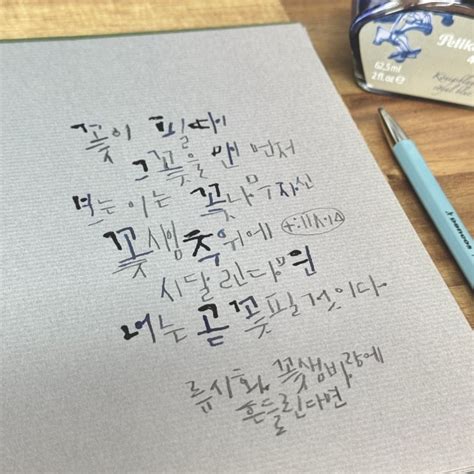 꽃이 필 때
그 꽃을 맨 먼저
보는 이는 꽃나무 자신
꽃샘추위에
시달린다면
너는 곧 꽃필 것이다
류시화, 꽃샘바람에
흔들린다면
Pelik
62,5 ml
2 fl.oz